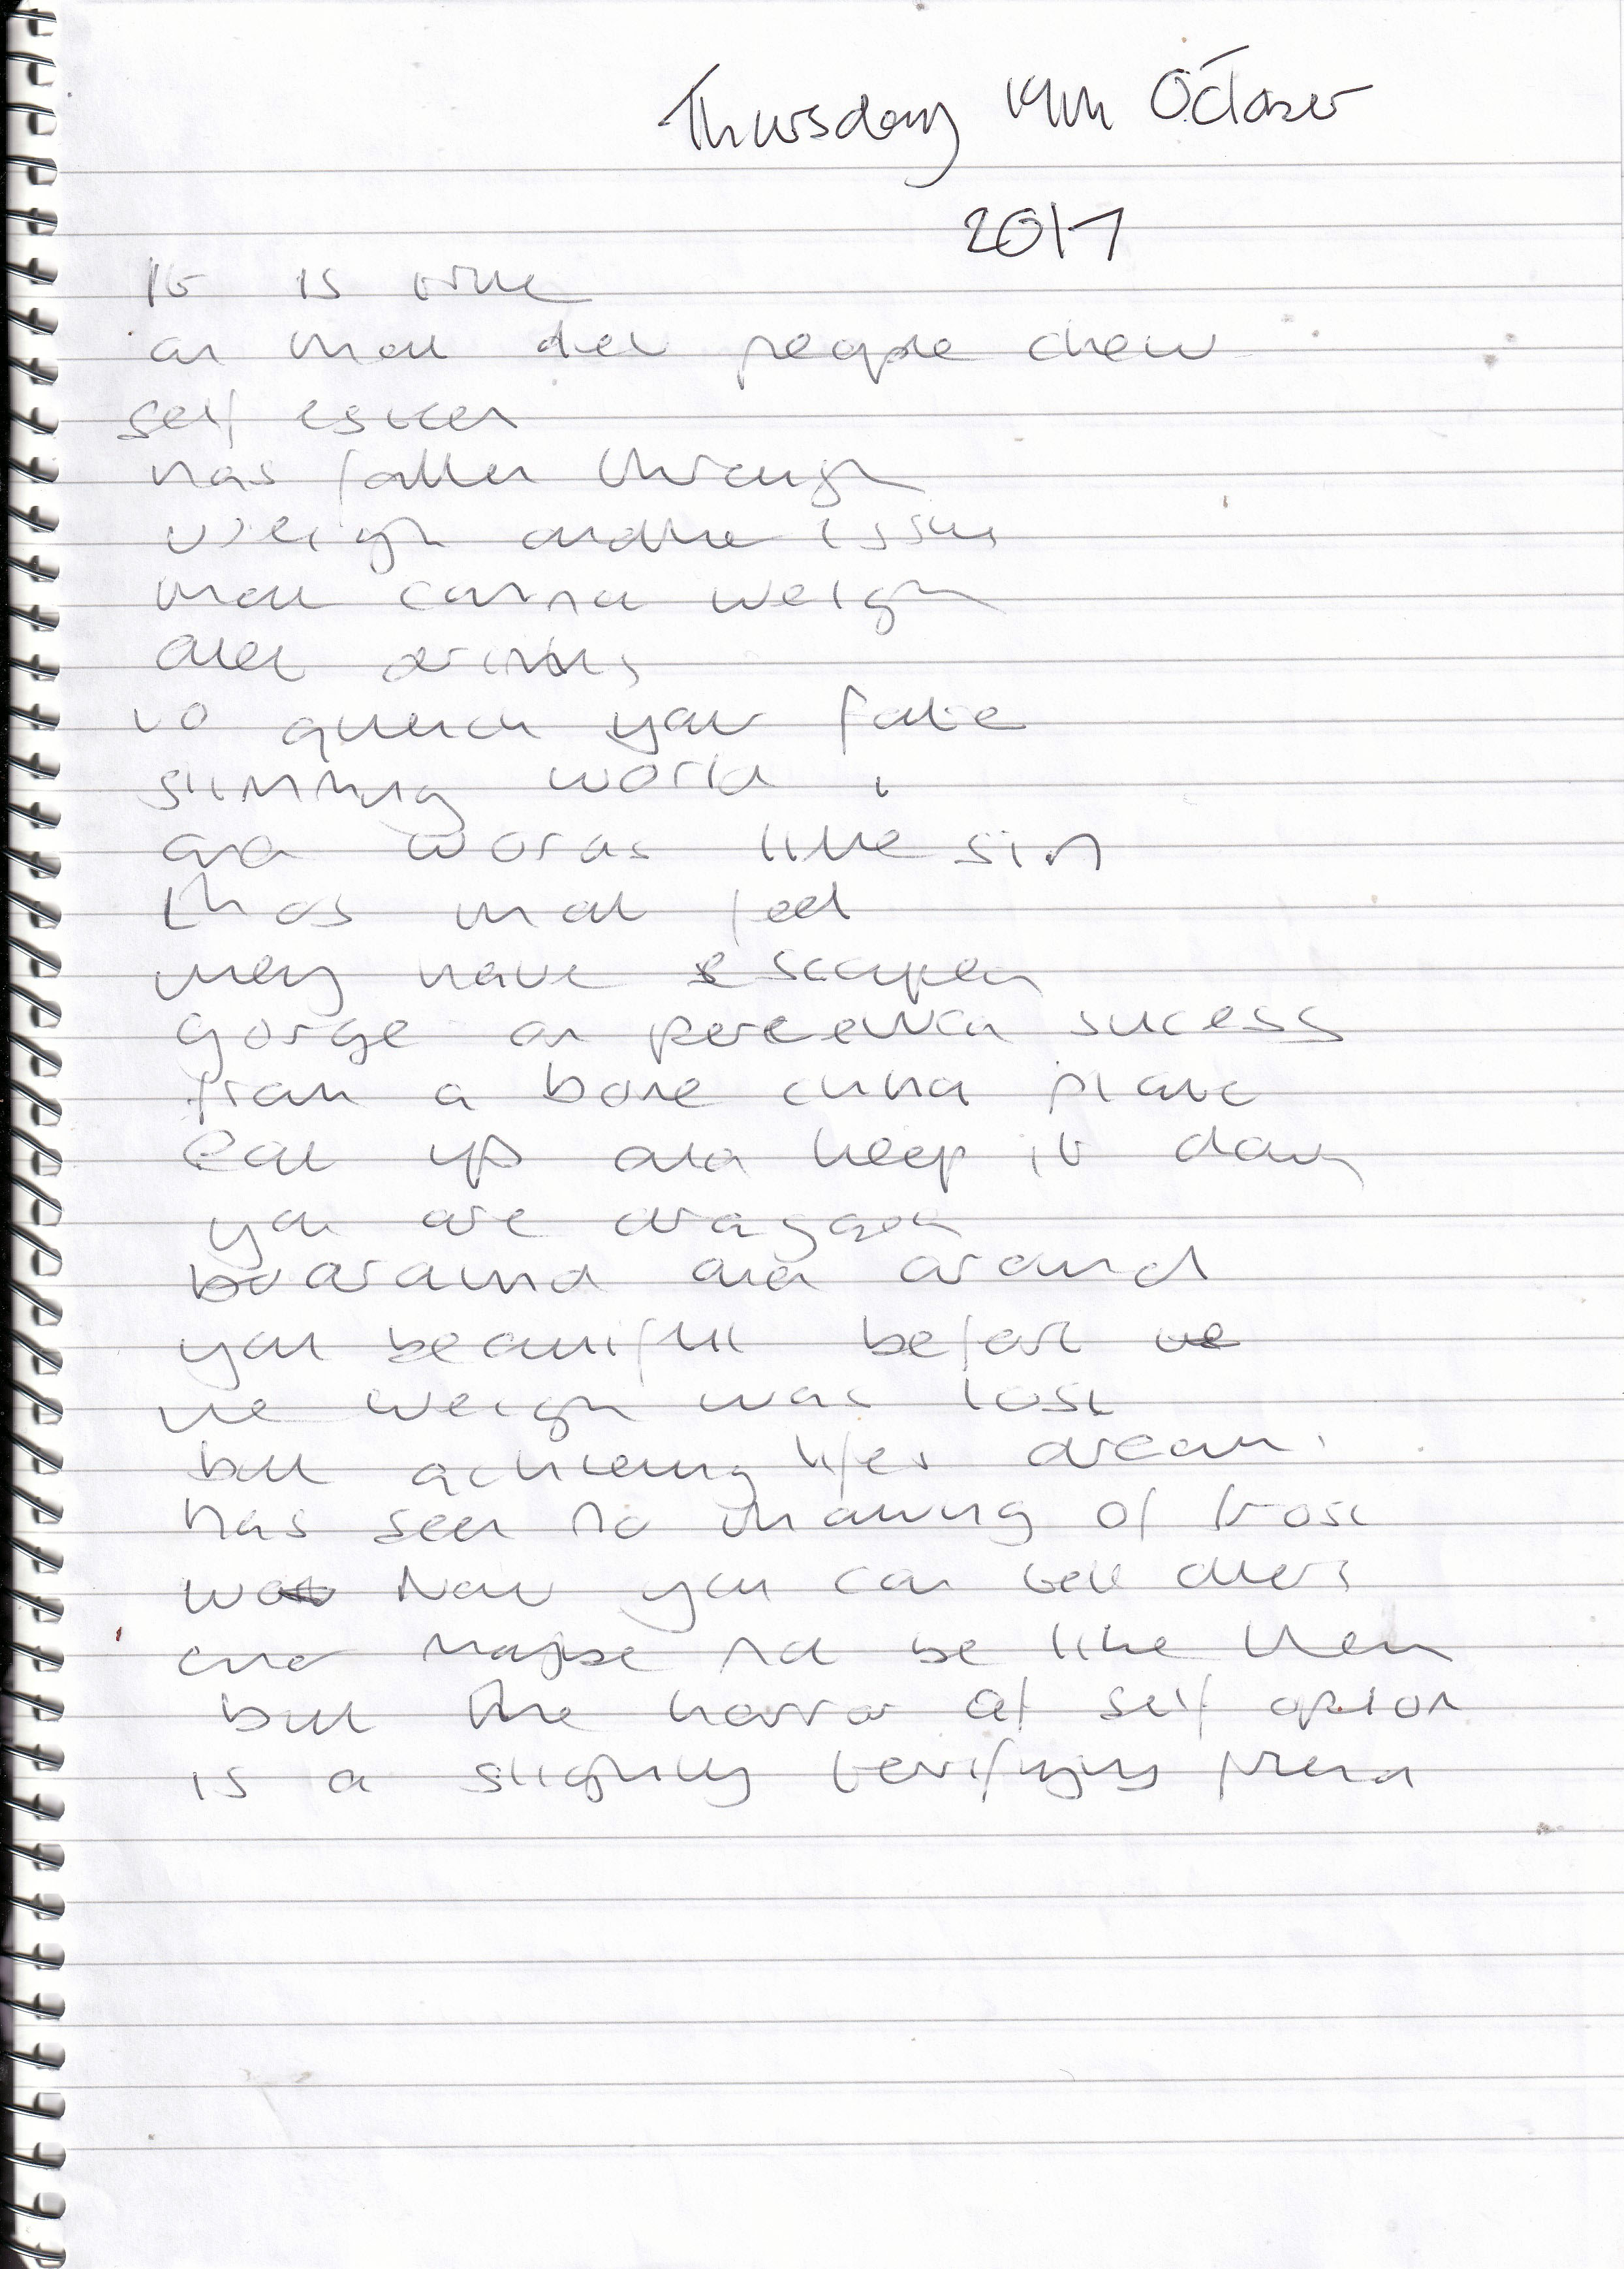 Thursday 19th October
2017
It is true
on that diet people chew
self esteem
has fallen through
weigh and the issues
that cannot weigh
diet drinks
to quench your fate
slimming world
and words like sin
that feel
they have escaped
gorge on perceived sucess
from a bone china plate
eat up and keep it down
you are
around and around
you beautiful before
the weigh was lost
but achieving lifes dream
has seen no thawing of frost
Now you can tell others
and maybe not be like them
but the horror of self opion
is a slightly terrifying friend